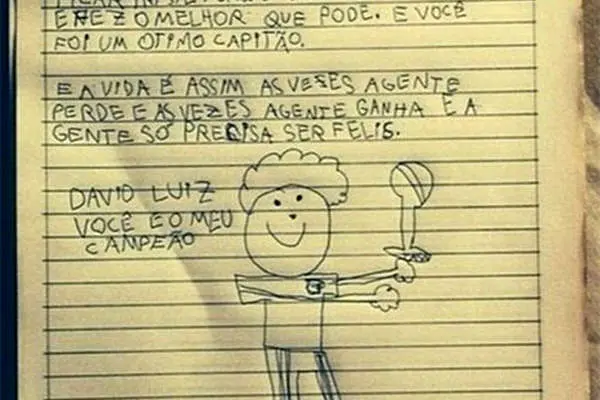 E FEZ O MELHOR QUE PODE. E VOCÊ
FOI UM OTIMO CAPITÃO.
E A VIDA É ASSIM AS VESES AGENTE
PERDE E AS VEZES AGENTE GANHA E A
GENTE SO PRECISA SER FELIS.
DAVID LUIZ
VOCÊ E O MEU
CAMPEÃO